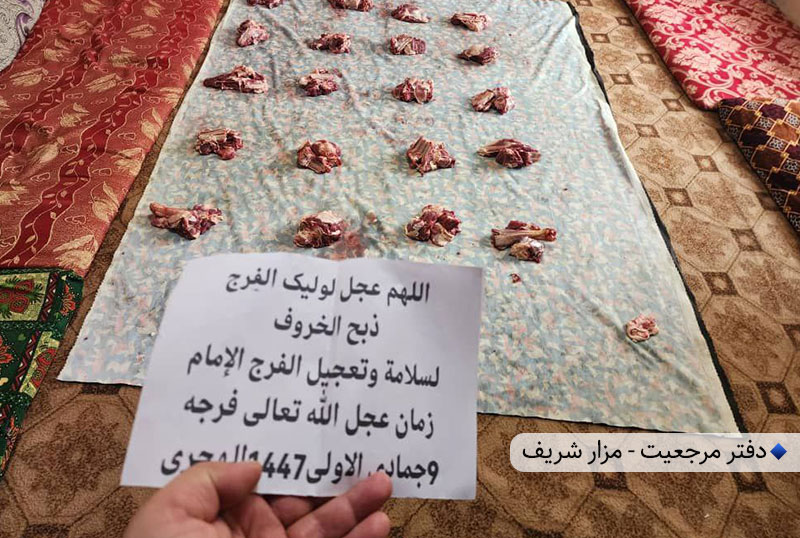 اللهم عجل لولیک الفرج
ذبح الخروف
لسلامة وتعجيل الفرج الإمام
زمان عجل الله تعالى فرجه
9جمادی الاولی1447الهجری
دفتر مرجعیت - مزار شریف